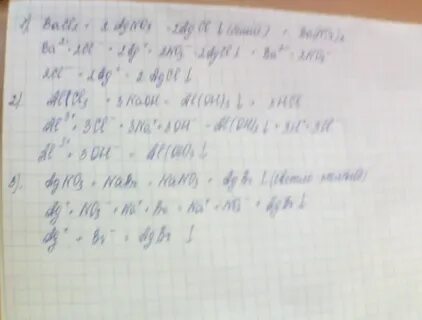 1) BaCl₂ + 2AgNO₃ = 2AgCl↓ (белый) + Ba(NO₃)₂
Ba²⁺ + 2Cl⁻ + 2Ag⁺ + 2NO₃⁻ = 2AgCl↓ + Ba²⁺ + 2NO₃⁻
2Cl⁻ + 2Ag⁺ = 2AgCl↓
2) AlCl₃ + 3NaOH = Al(OH)₃↓ +
Al³⁺ + 3Cl⁻ + 3Na⁺ + 3OH⁻ = Al(OH)₃↓ +
Al³⁺ + 3OH⁻ = Al(OH)₃↓
3) AgNO₃ + NaBr = NaNO₃ + AgBr↓ (светло
Ag⁺ + NO₃⁻ + Na⁺ + Br⁻ = Na⁺ + NO₃⁻ + AgBr↓
Ag⁺ + Br⁻ = AgBr↓